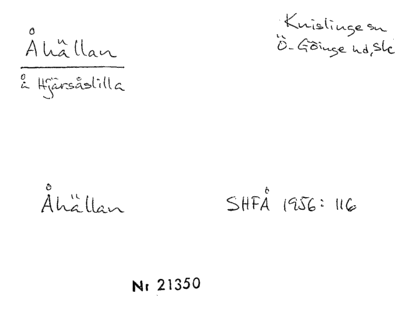 Åhällan
å Hjärsåslilla
Knislinge sn
Ö-Göinge hd, Sk
Åhällan
SHFÅ 1956: 116
Nr 21350